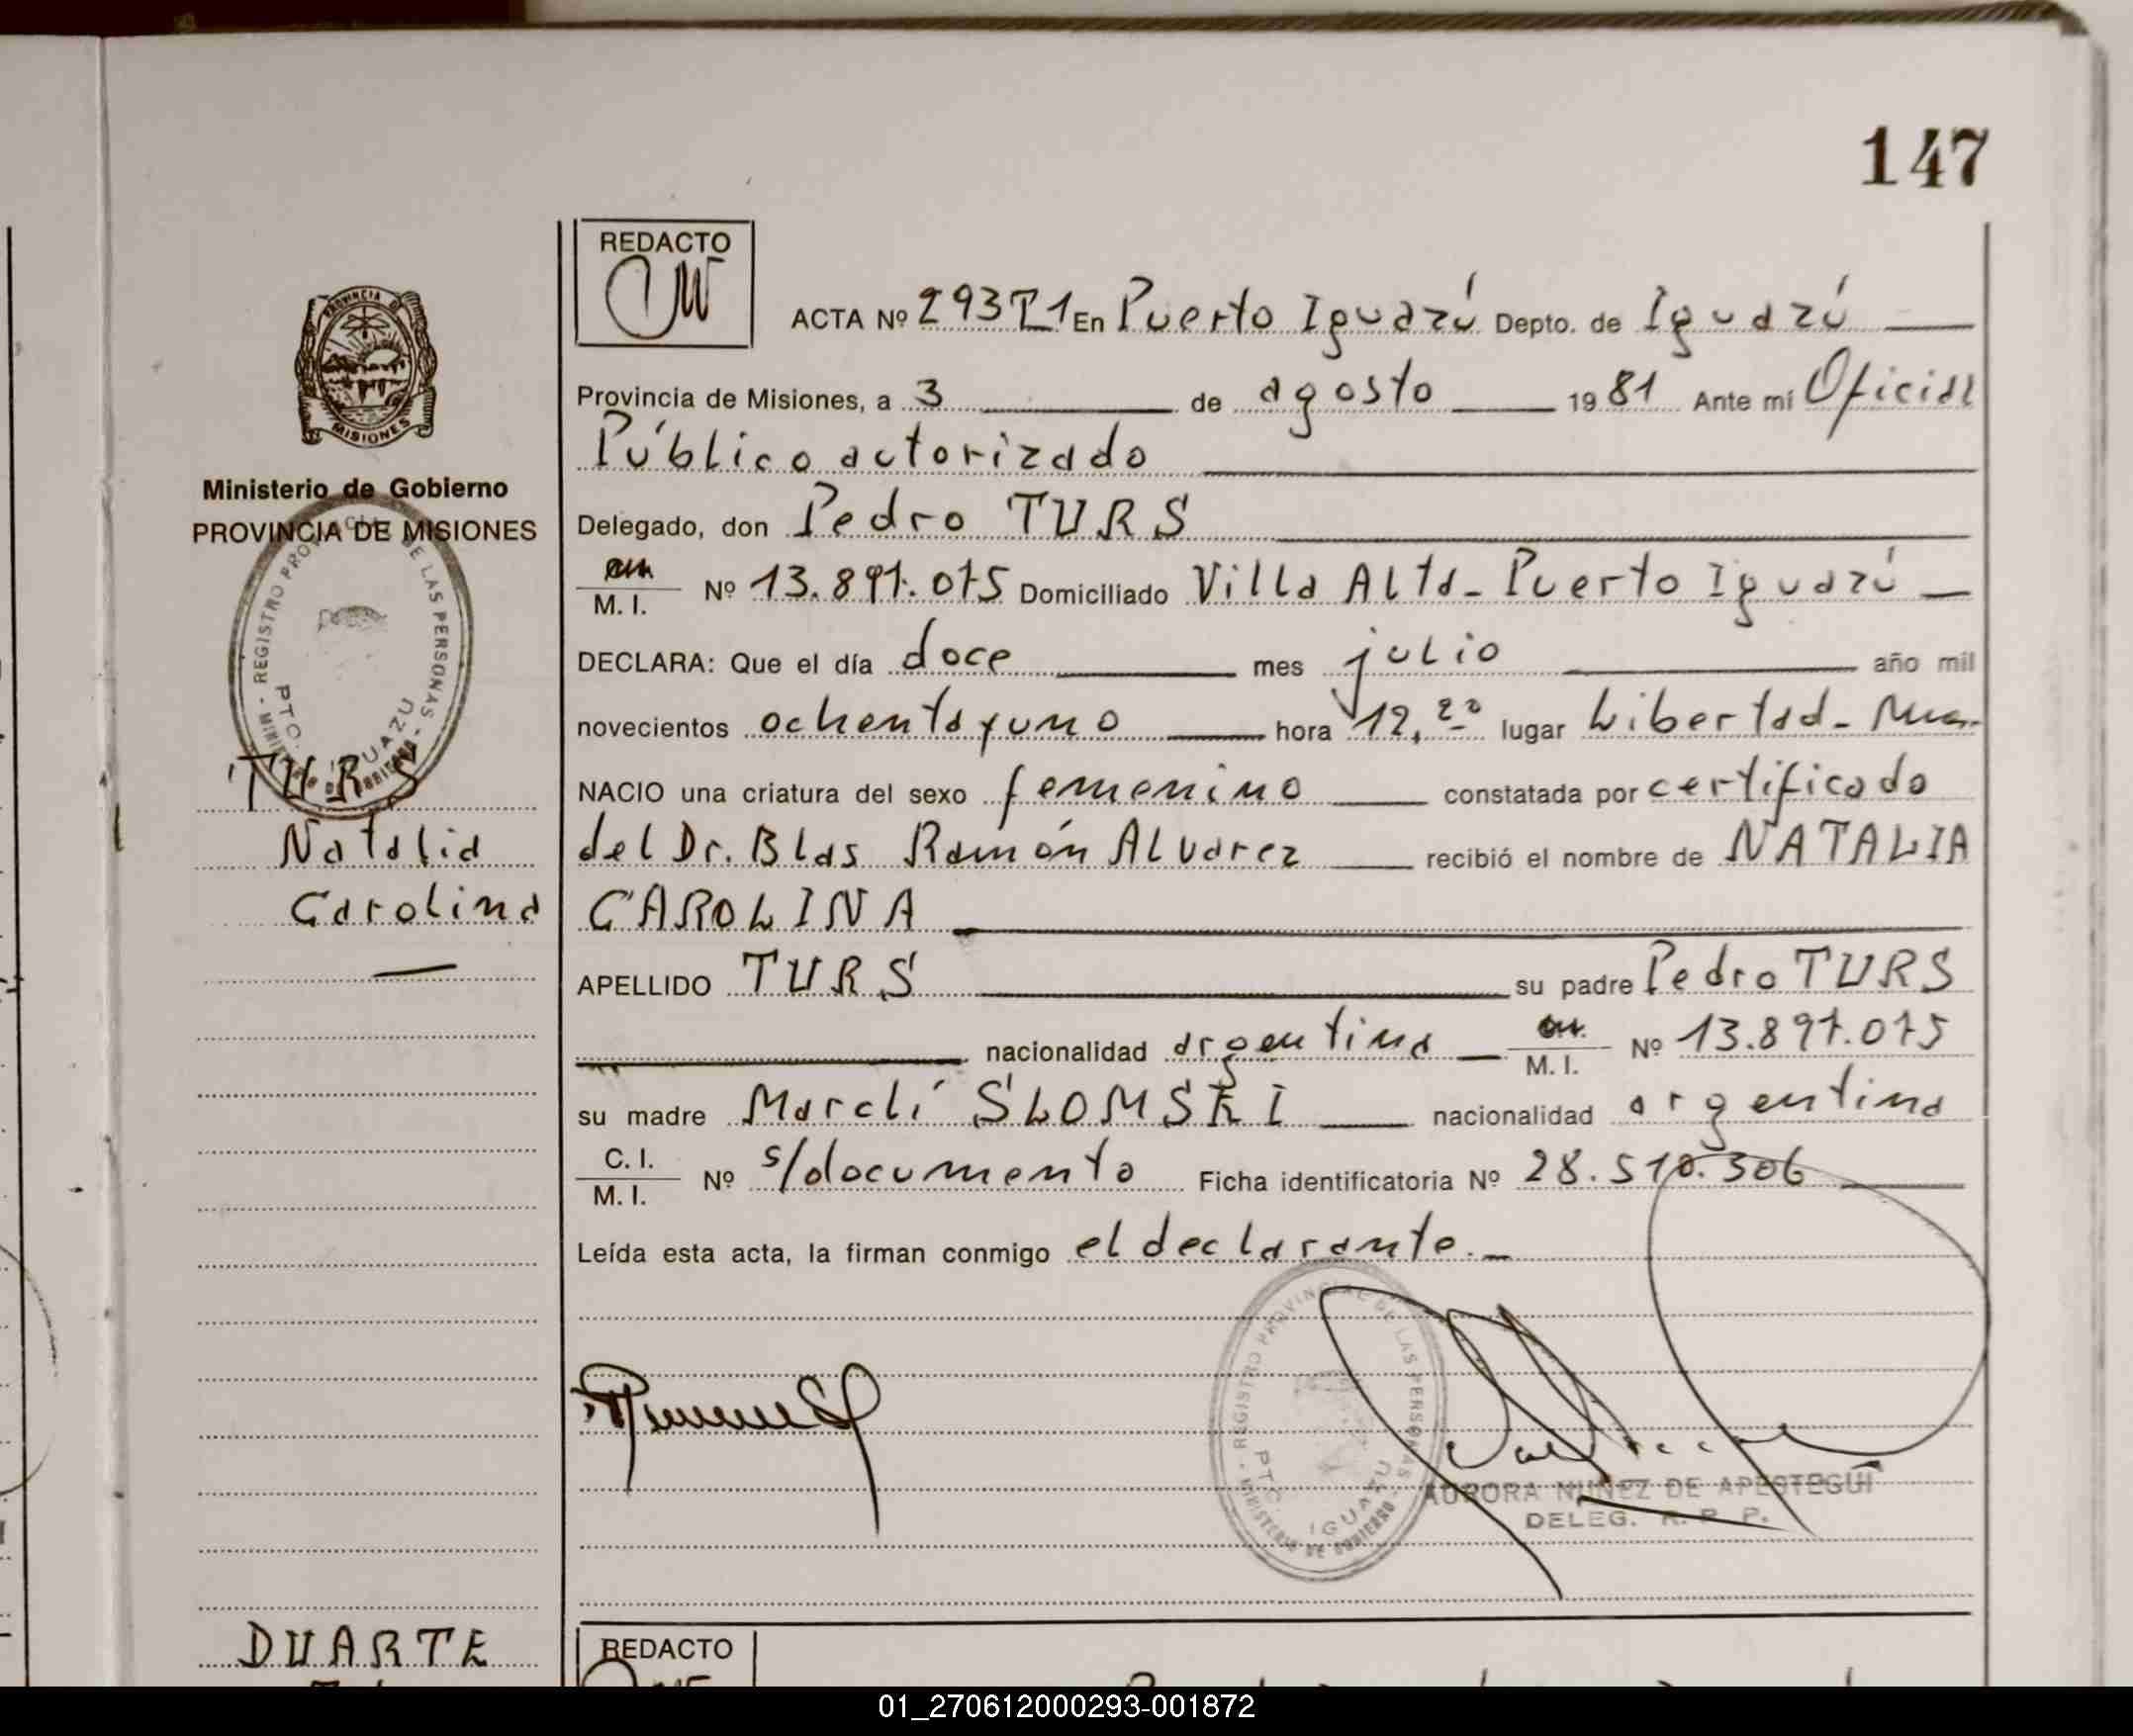 147
REDACTO
ACTA Nº 293T1 En Puerto Iguazú Depto. de Iguazú
Provincia de Misiones, a 3 de agosto 1981 Ante mí Oficial
Público actorizado
Delegado, don Pedro TURS
M. I. Nº 13.891.075 Domiciliado Villa Alta - Puerto Iguazú
DECLARA: Que el día doce mes julio año mil
novecientos ochenta y uno hora 12,20 lugar Libertad - Mnes.
NACIO una criatura del sexo femenino constatada por certificado
del Dr. Blas Ramón Alvarez recibió el nombre de NATALIA
CAROLINA
APELLIDO TURS su padre Pedro TURS
nacionalidad argentina M. I. Nº 13.891.075
su madre Marclí SLOMSKI nacionalidad argentina
C. I.
M. I. Nº s/documento Ficha identificatoria Nº 28.510.306
Leída esta acta, la firman conmigo el declarante.-
PROVINCIA DE
MISIONES
Ministerio de Gobierno
PROVINCIA DE MISIONES
TURS
Natalia
Carolina
REGISTRO PROVINCIAL DE LAS PERSONAS
PTO. IGUAZU
MINISTERIO DE GOBIERNO
AURORA NUÑEZ DE APESTEGUI
DELEG. R. P. P.
DUARTE
REDACTO
01_270612000293-001872